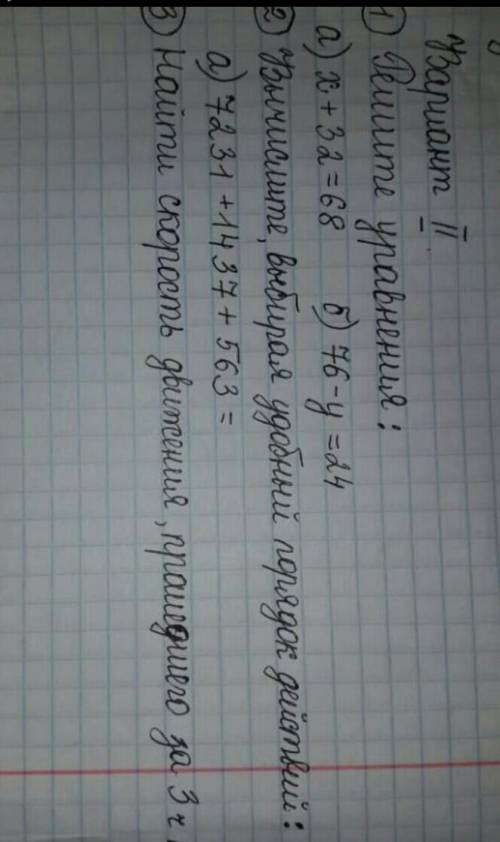 Вариант II.
1) Решите уравнения:
а) x + 32 = 68 б) 76 - y = 24
2) Вычислите, выбирая удобный порядок действий:
а) 7231 + 1437 + 563 =
3) Найти скорость движения, прошедшего за 3 ч